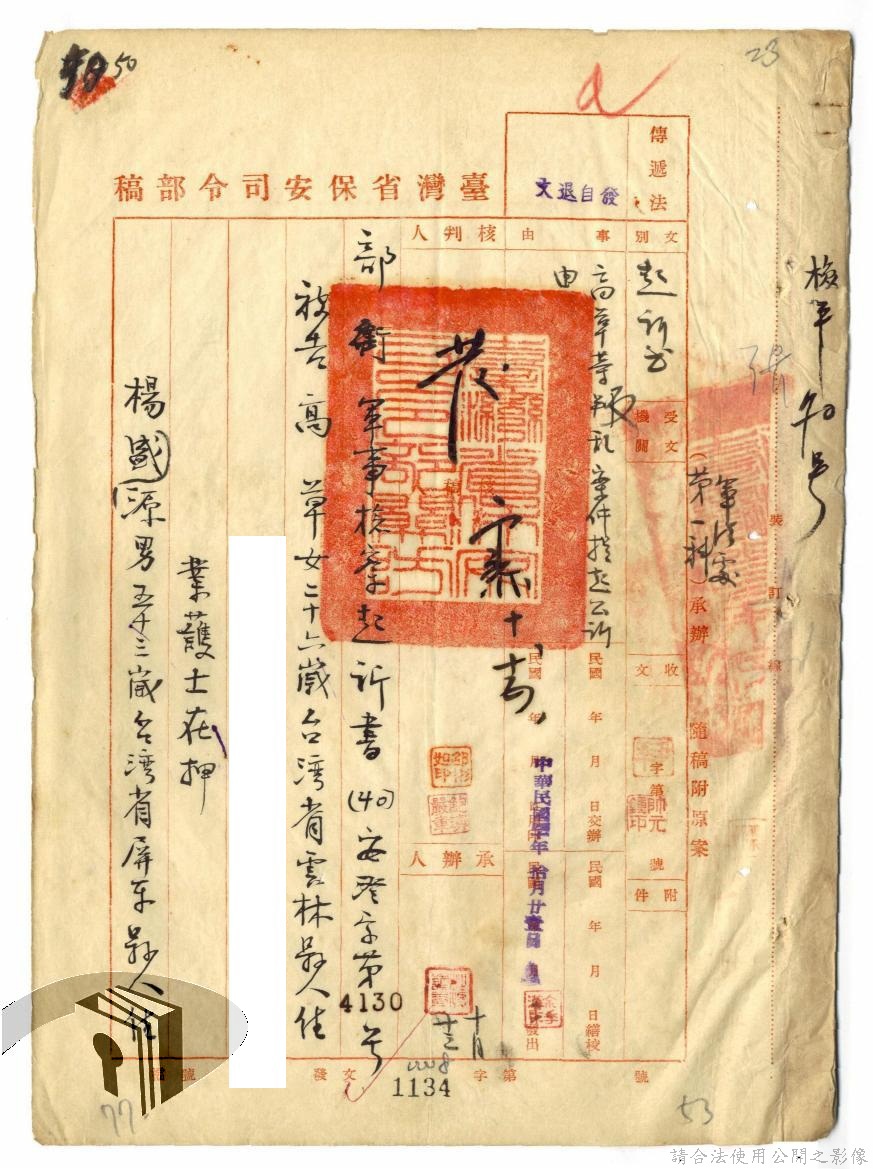 50
23
傳遞法
發自退文
臺灣省保安司令部稿
文別
事由
核判人
起訴书
高草等叛乱案件提起公訴
由
受文機關
檢平40号
張
裝訂線
(軍法處第一科)承辦
隨稿附原案
收文
字第
號
附件
民國 年 月 日交辦
民國 年 月 日繕校
中華民國四十年拾月廿壹日
承辦人
部銜 軍事檢察官起訴書 (40)安澄字第4130号
被告 高 草女二十六歲台湾省雲林县人住
業護士在押
楊國源男五十三歲台湾省屏东县人住
十月
發文
字第
號
1134
77
53
請合法使用公開之影像